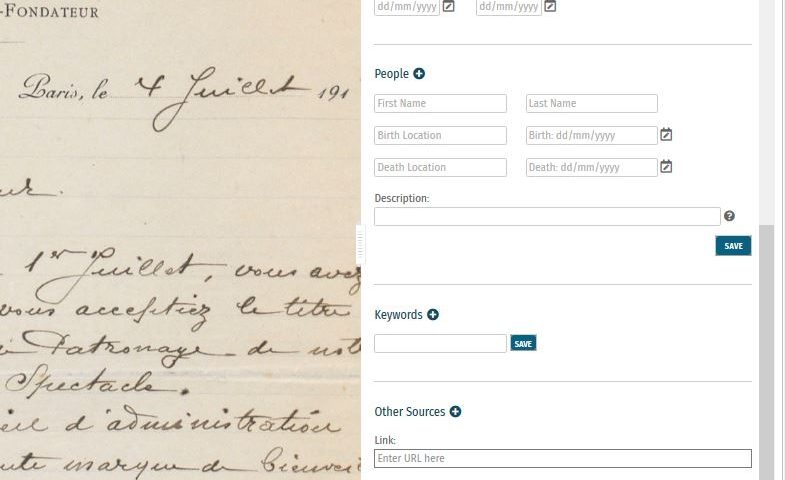 -FONDATEUR
Paris, le 4 Juillet 191
ur.
1er Juillet, vous avez
vous acceptiez le titre
Patronage de not
Spectacle.
eil d'administration
ute marque de bienvei
dd/mm/yyyy dd/mm/yyyy
People
First Name Last Name
Birth Location Birth: dd/mm/yyyy
Death Location Death: dd/mm/yyyy
Description:
?
SAVE
Keywords
SAVE
Other Sources
Link:
Enter URL here